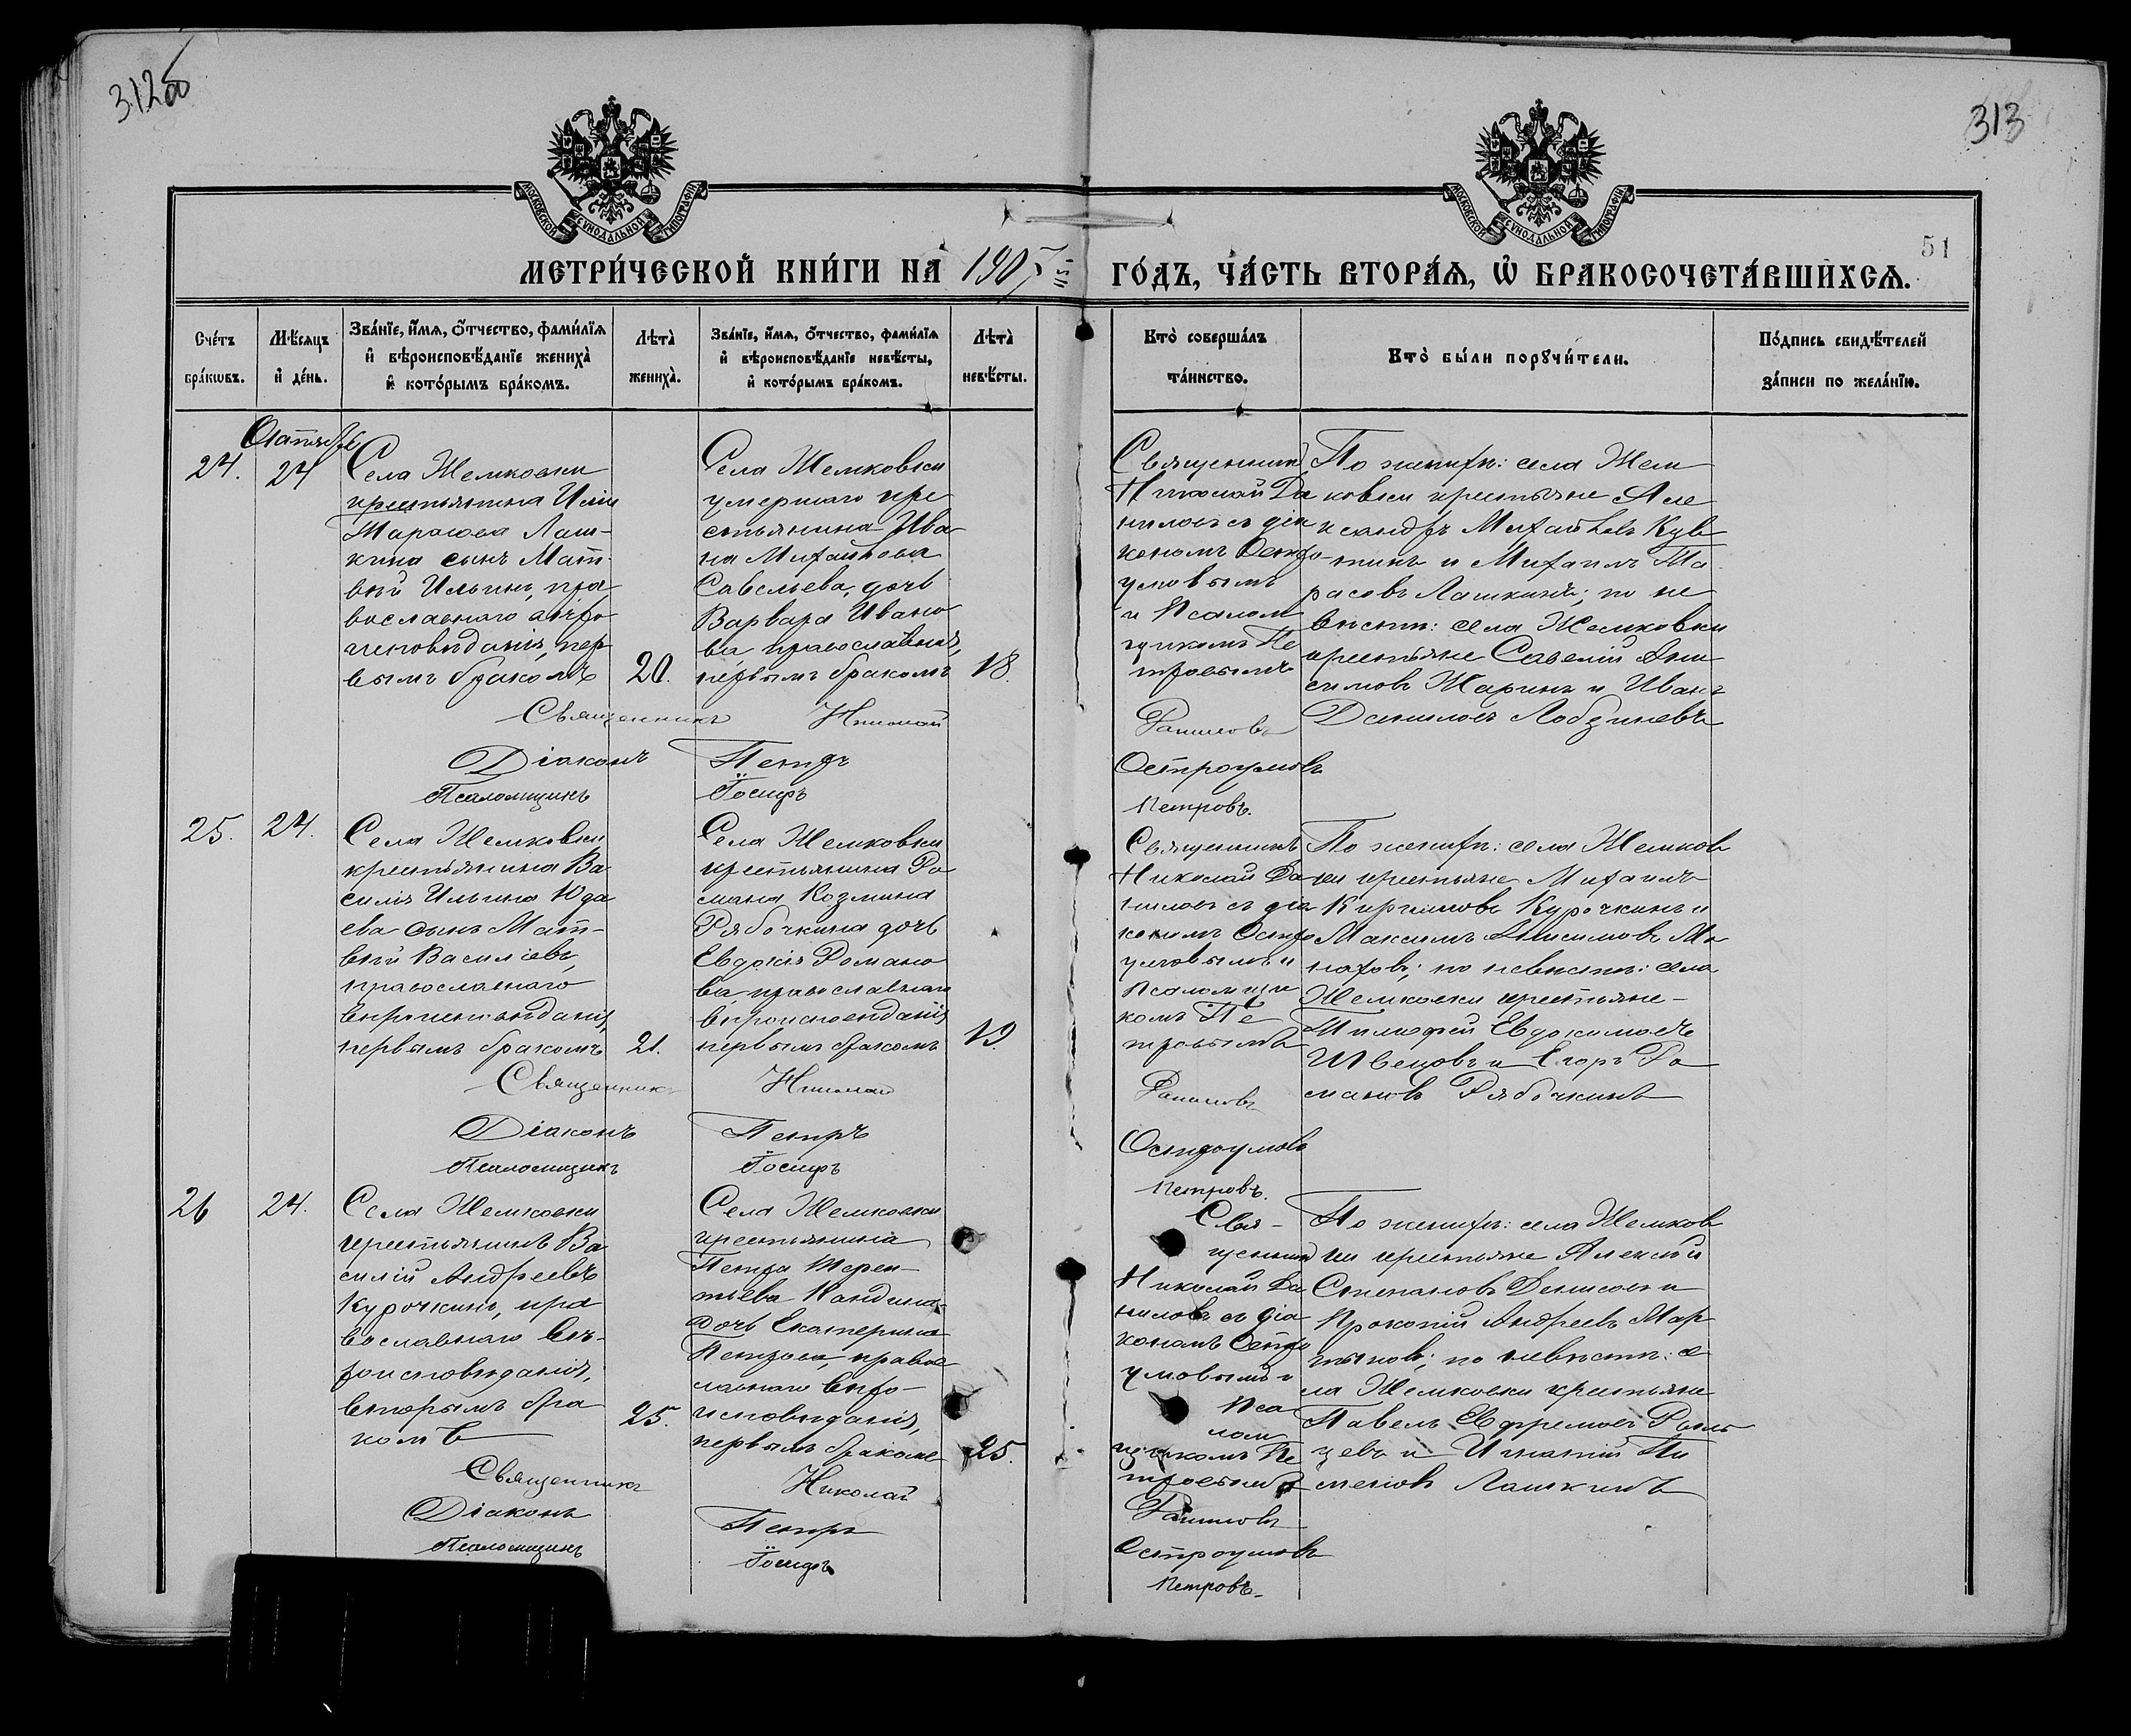 312об
313
51
МОСКОВСКОЙ СѴНОДАЛЬНОЙ ТИПОГРАФІИ
МОСКОВСКОЙ СѴНОДАЛЬНОЙ ТИПОГРАФІИ
МЕТРИ́ЧЕСКОЙ КНИ́ГИ НА 1907
ГО́ДЪ, ЧА́СТЬ ВТОРА́Ѧ, Ѡ҆ БРАКОСОЧЕТА́ВШИХСѦ.
Сче́тъ бра́кѡвъ.
Мѣ́сяцъ и҆ де́нь.
Зва́нїе, и҆́мѧ, ѻ҆́тчество, фами́лїѧ
и҆ вѣроисповѣ́данїе жениха̀
и҆ кото́рымъ бра́комъ.
Лѣта̀ жениха̀.
Зва́нїе, и҆́мѧ, ѻ҆́тчество, фами́лїѧ
и҆ вѣроисповѣ́данїе невѣ́сты,
и҆ кото́рымъ бра́комъ.
Лѣта̀ невѣ́сты.
Кто̀ соверша́лъ
та́инство.
Кто̀ бы́ли порꙋчи́тели.
По́дпись свидѣ́телей
за́писи по жела́нїю.
24.
Октября
24
Села Жемковки
крестьянина Иліи
Тарасова Лаш-
кина сынъ Мат-
вѣй Ильинъ, пра
вославнаго вѣро
исповѣданія, пер
вымъ бракомъ
20.
Села Жемковки
умершаго кре
стьянина Ива
на Михайлова
Савельева, дочь
Варвара Ивано
ва, православная,
первымъ бракомъ
18.
Священникъ
Николай Да
ниловъ съ діа
кономъ Остро
умовымъ
и Псалом
щикомъ Пе
тровымъ
По женихѣ: села Жем
ковки крестьяне Але
ксандръ Михайловъ
и Михаилъ Та
расовъ Лашкинъ; по не
вѣстѣ: села Жемковки
крестьяне Савелій Ани
симовъ Жаринъ и Иванъ
Даниловъ Лобзиневъ
Священникъ Николай Даниловъ
Діаконъ Петръ Остроумовъ
Псаломщикъ Іосифъ Петровъ.
25.
24.
Села Жемковки
крестьянина Ва
силія Ильина Юда
ева сынъ Мат-
вѣй Васильевъ,
православнаго
вѣроисповѣданія,
первымъ бракомъ
21.
Села Жемковки
крестьянина Ро
мана Козмина
Рябочкина дочь
Евдокія Романо
ва, православнаго
вѣроисповѣданія
первымъ бракомъ
19.
Священникъ
Николай Да
ниловъ съ діа
кономъ Остро
умовымъ и
Псаломщи
комъ Пе
тровымъ
По женихѣ: села Жемков
ки крестьяне Михаилъ
Курочкинъ и
Максимъ Анисимовъ Мо
наховъ; по невѣстѣ: села
Жемковки крестьяне-
Тимофей Евдокимовъ
Швецовъ и Егоръ Ро
мановъ Рябочкинъ
Священникъ Николай Даниловъ
Діаконъ Петръ Остроумовъ
Псаломщикъ Іосифъ Петровъ.
26
24.
Села Жемковки
крестьянинъ Ва
силій Андреевъ
Курочкинъ, пра
вославнаго вѣ-
роисповѣданія,
вторымъ бра
комъ
25.
Села Жемковки
крестьянина
Петра Терен-
тьева Кандина
дочь Екатерина
Петрова, правос
лавнаго вѣро-
исповѣданія,
первымъ бракомъ
25.
Свя-
щенникъ
Николай Да
ниловъ съ діа
кономъ Остро
умовымъ и
Пса
лом
щикомъ Пе
тровымъ
По женихѣ: села Жемков
ки крестьяне Алексѣй
Степановъ Денисовъ и
Прокопій Андреевъ Мар
тыновъ; по невѣстѣ: се
ла Жемковки крестьяне
Павелъ Ефремовъ
и Игнатій Пи
меновъ Лашкинъ
Священникъ Николай Даниловъ
Діаконъ Петръ Остроумовъ
Псаломщикъ Іосифъ Петровъ.